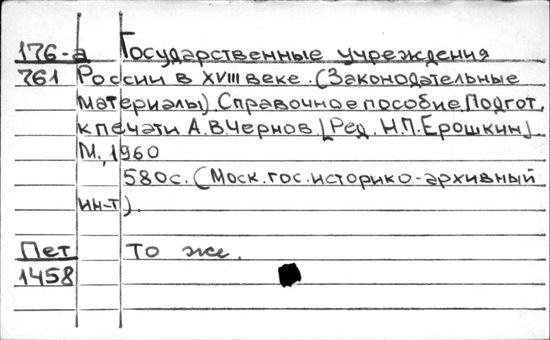 176-а Государственные учреждения
761 России в XVIII веке. (Законодательные
материалы). Справочное пособие. Подгот.
к печати А.В.Чернов [Ред. Н.П.Ерошкин]
М., 1960
580с. (Моск.гос.историко-архивный
ин-т).
Пет То же.
1458